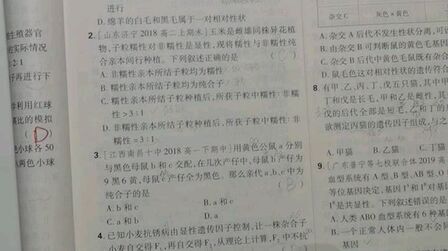 进行
D. 绵羊的白毛和黑毛属于一对相对性状
2. [山东济宁2018高二上期末]玉米是雌雄同株异花植
物,子粒糯性对非糯性是显性,现将糯性与非糯性纯
合亲本间行种植。下列叙述正确的是
A. 非糯性亲本所结子粒均为糯性
B. 糯性亲本所结子粒均为纯合子
C. 糯性亲本所结子粒种植后,所获子粒中糯性:非糯
性=3:1
D. 非糯性亲本所结子粒种植后,所获子粒中糯性:非糯
性>3:1
3. [江西南昌十中2018高一下期中]用黄色公鼠a分别
与黑色母鼠b和c交配,在几次产仔中,母鼠b产仔为
9黑6黄,母鼠c产仔全为黑色。那么亲代a、b、c中为
纯合子的是
A. b和c
B. a和c
C. a和b
D. a
4. 已知小麦抗锈病由显性遗传因子控制,让一株杂合子
小麦自交得F₁,
再自交得F₂,从理论上计算,F₂中不抗
生殖器官
的实际情况
2:1
仔再进行下
并利用红球
比的模拟
(D)
小球各50
两色小球
杂交C
灰色×黄色
A. 杂交A后代不发生性状分离,
B. 由杂交B可判断鼠的黄色毛基因
C. 杂交B后代黄色毛鼠
D. 鼠毛色这对相对性状的遗传符合
8. 有甲、乙、丙、丁、戊五只猫,其中甲
丁和戊是长毛,甲和乙是雌性,其
戊的后代全部是短毛,甲和丁的后
欲测定丙猫的遗传因子组成,与之
A. 甲猫
B. 乙猫
C. 丁猫
9. [广东普宁等七校联合体2019高
血型系统有A型、B型、AB型、O
等位基因决定,基因Iᴬ和Iᴮ对基
是共显性。下列叙述错误的是
A. 人类ABO血型系统有6种基
B. 一个正常人体内一般不